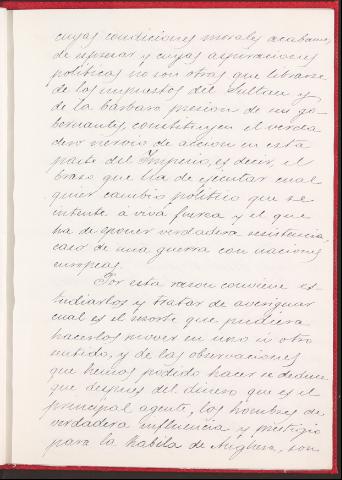 cuyas condiciones morales acabamos
de reseñar y cuyas aspiraciones
politicas no son otras que librarse
de los impuestos del Sultan y
de la bárbara presion de sus go-
bernantes, constituyen el verda
dero nervio de accion en esta
parte del Imperio, es decir, el
brazo que ha de ejecutar cual
quier cambio politico que se
intente á viva fuerza y el que
ha de oponer verdadera resistencia,
caso de una guerra con naciones
europeas.
Por esta razon conviene es
tudiarlos y tratar de averiguar
cual es el resorte que pudiera
hacerlos mover en uno ú otro
sentido, y de las observaciones
que hemos podido hacer se deduce
que despues del dinero que es el
principal agente, los hombres de
verdadera influencia y prestigio
para la Kabila de Anghera, son